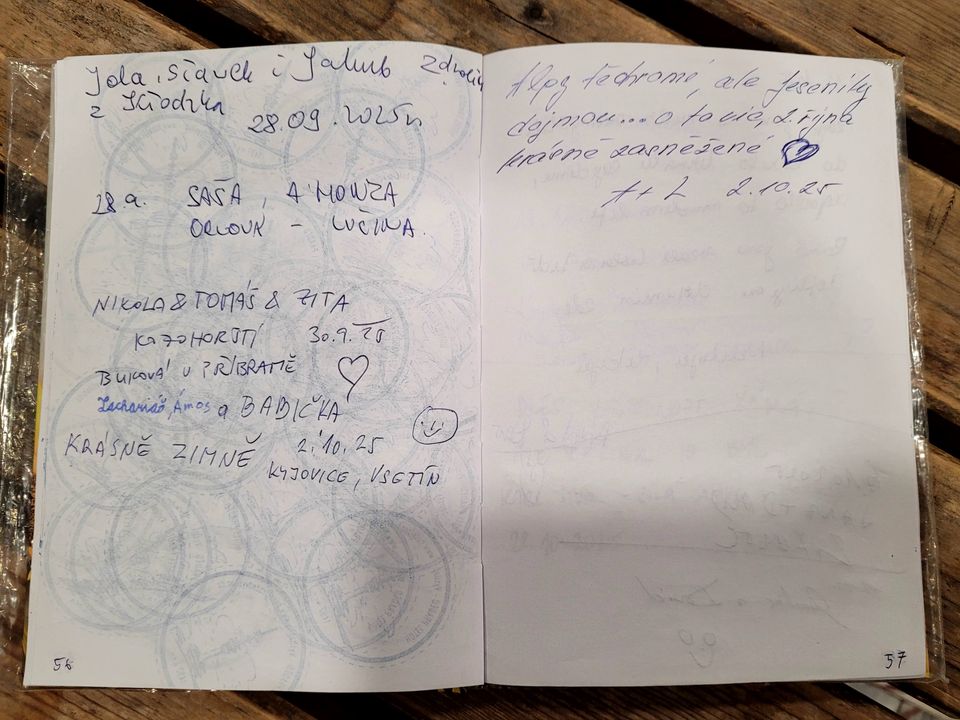 Jola, Sławek i Jakub
z Kłodzka
28.09.2025r
28.9. SAŠA, A HONZA
ORLOVÁ - LUČINA.
NIKOLA & TOMÁŠ & ZITA
30.9.25
BUKOVÁ U PŘÍBRAMĚ
Zachariáš, Ámos a BABIČKA
KRÁSNĚ ZIMNĚ 2.10.25
KYJOVICE, VSETÍN
56
Alpy ale Jeseníky
dojmou... o to víc, 2. října
krásně zasněžené
A + L 2.10.25
57